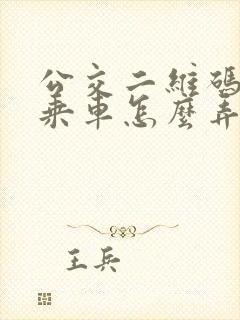 公交二維碼
乘車怎麼弄
王兵